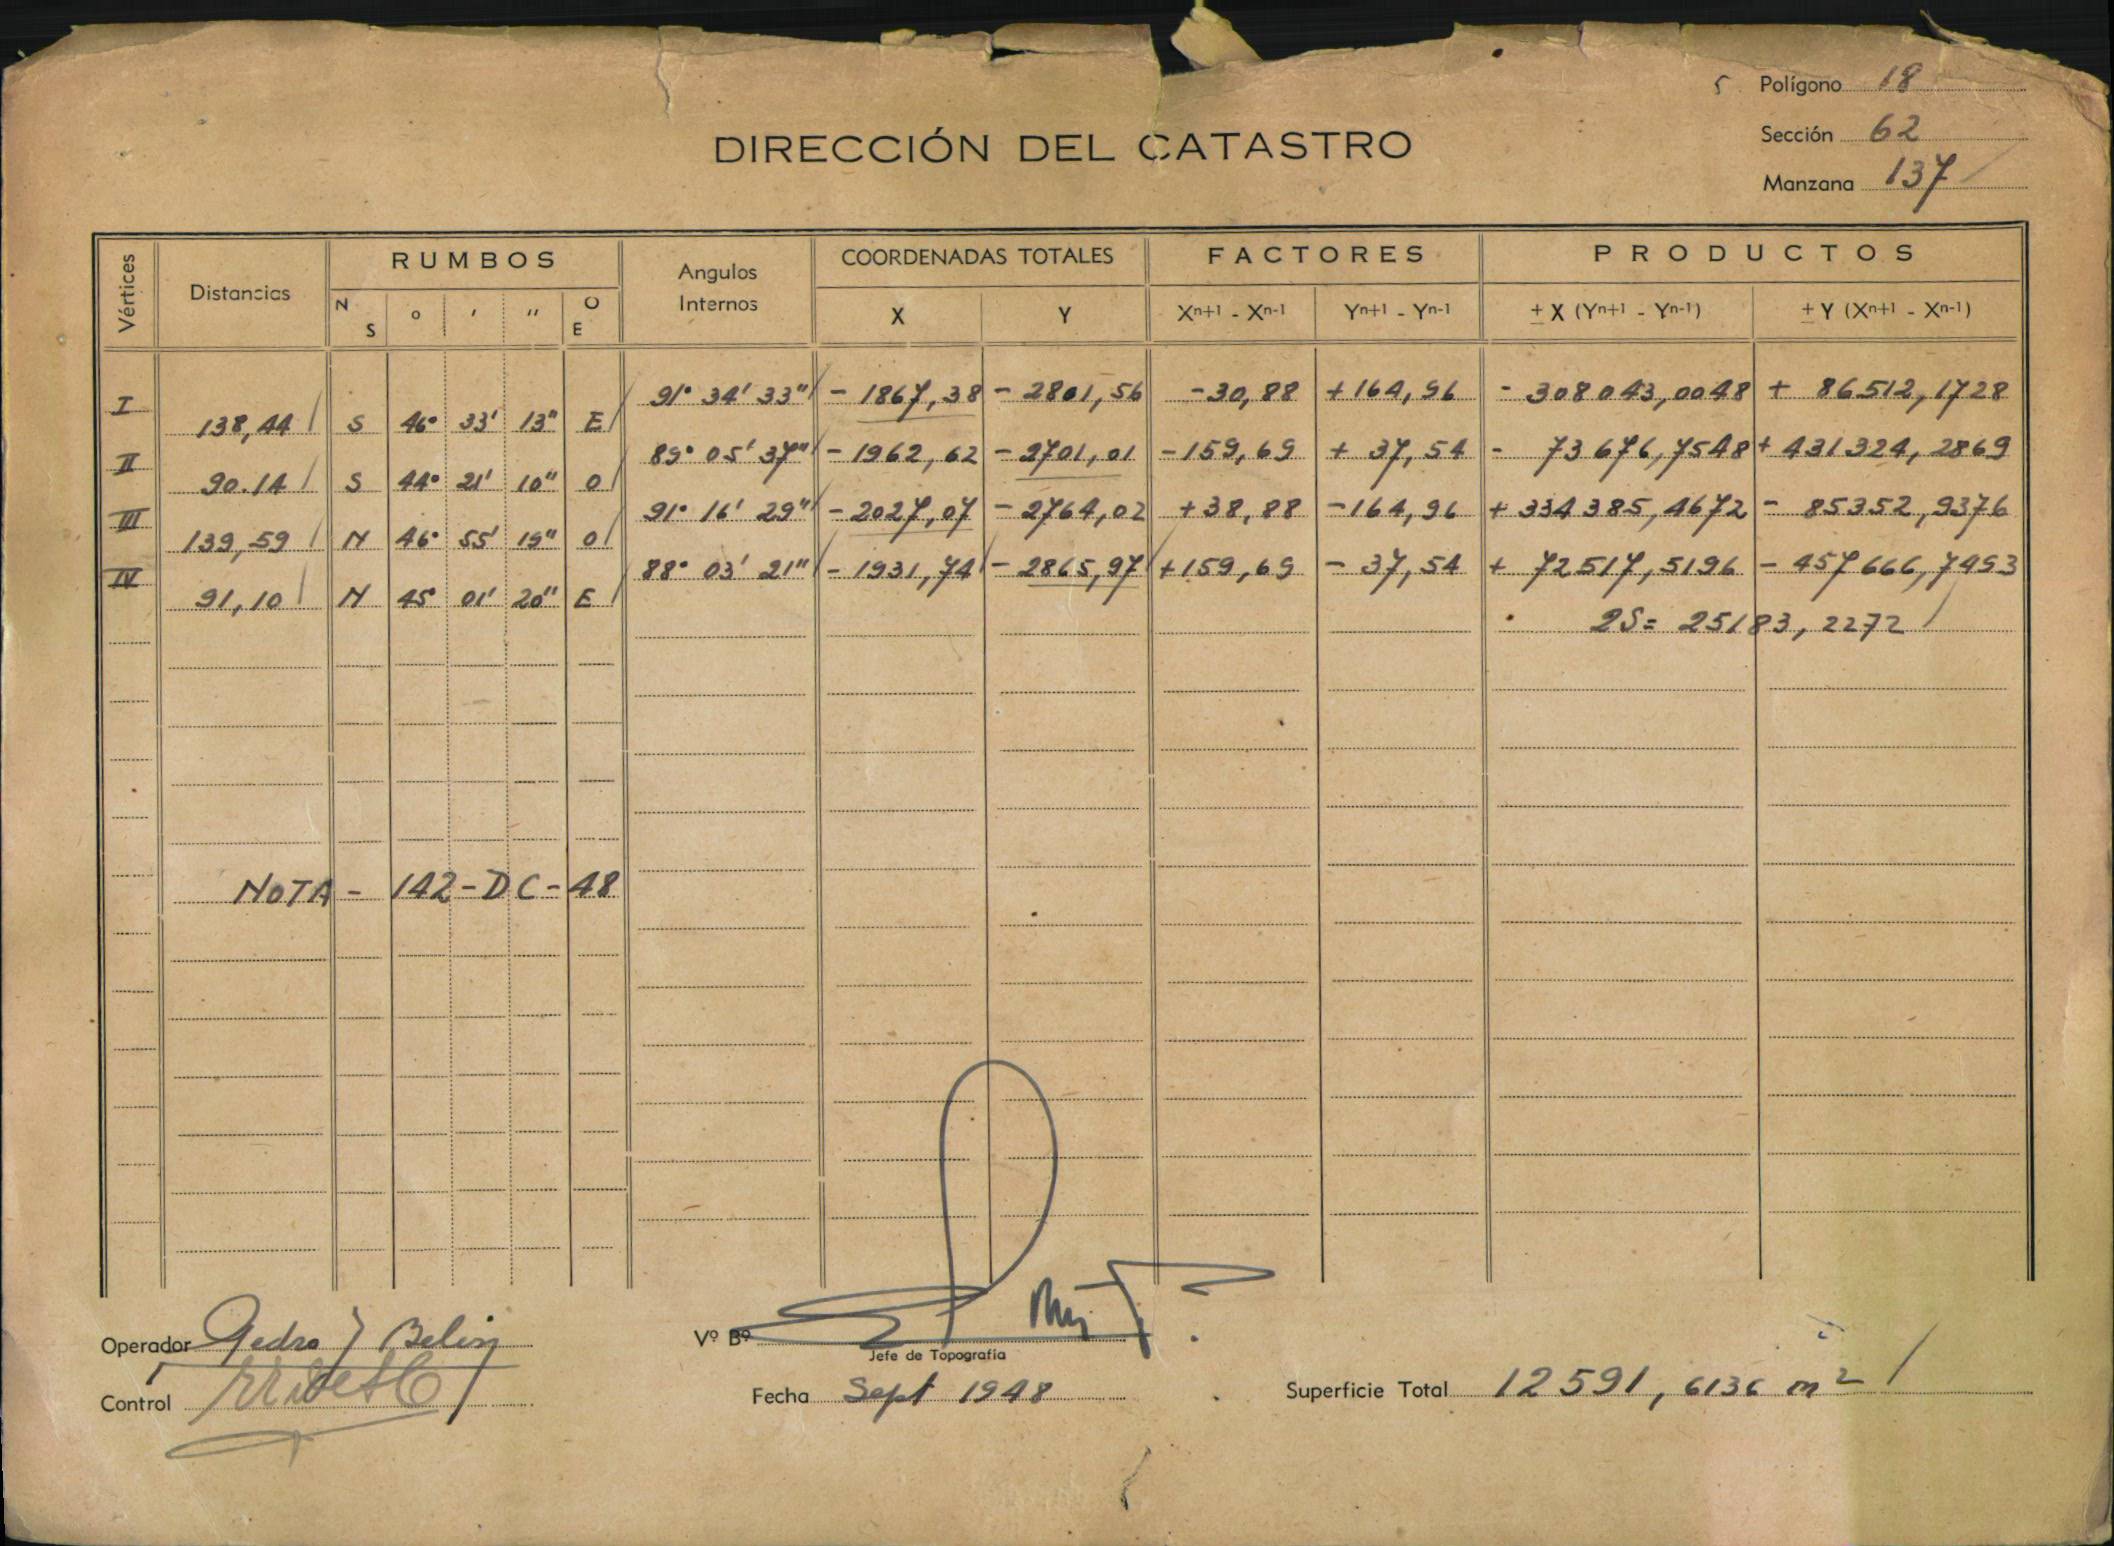 5 Polígono 18
DIRECCIÓN DEL CATASTRO
Sección 62
Manzana 137
Vértices Distancias RUMBOS Angulos Internos COORDENADAS TOTALES FACTORES PRODUCTOS
N S ° ' " O E X Y Xⁿ⁺¹ - Xⁿ⁻¹ Yⁿ⁺¹ - Yⁿ⁻¹ ± X (Yⁿ⁺¹ - Yⁿ⁻¹) ± Y (Xⁿ⁺¹ - Xⁿ⁻¹)
I 91° 34' 33" - 1867,38 - 2801,56 - 30,88 + 164,96 - 308043,0048 + 86512,1728
138,44 S 46° 33' 13" E
II 89° 05' 37" - 1962,62 - 2701,01 - 159,69 + 37,54 - 73676,7548 + 431324,2869
90.14 S 44° 21' 10" O
III 91° 16' 29" - 2027,07 - 2764,02 + 38,88 - 164,96 + 334385,4672 - 85352,9376
139,59 N 46° 55' 19" O
IV 88° 03' 21" - 1931,74 - 2865,97 + 159,69 - 37,54 + 72517,5196 - 457666,7493
91,10 N 45° 01' 20" E
2S= 25183,2272
NOTA - 142 - DC - 48
Operador Pedro J Belin
Vº Bº
Jefe de Topografía
Control
Fecha Sept 1948
Superficie Total 12591,6136 m²